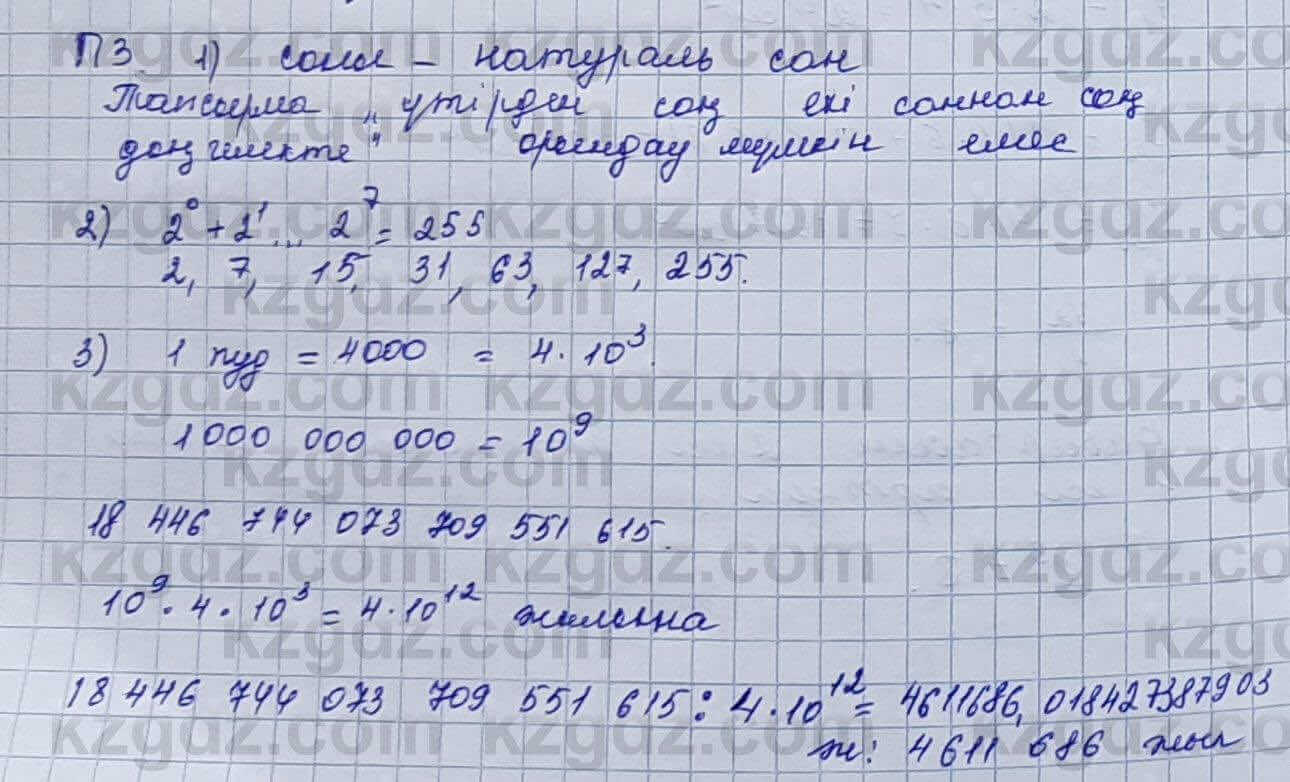 П3 1) саны - натураль сан
Тапсырма „үтірден соң екі саннан соң
дөңгелекте" орындау мүмкін емес
2) 2⁰ + 2¹ ... 2⁷ = 255
2, 7, 15, 31, 63, 127, 255.
3) 1 пуд = 4000 = 4 · 10³.
1 000 000 000 = 10⁹
18 446 744 073 709 551 615.
10⁹ · 4 · 10³ = 4 · 10¹² жылына
18 446 744 073 709 551 615 : 4 · 10¹² = 4611686,018427387903
ж: 4611 686 жыл
kzgdz.com